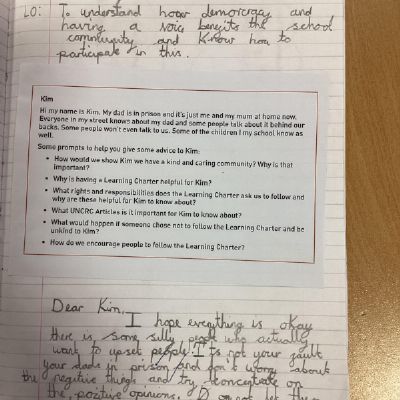 LO: To understand how democracy and
having a voice benefits the school
community and know how to
participate in this.
Kim
Hi my name is Kim. My dad is in prison and it's just me and my mum at home now.
Everyone in my street knows about my dad and some people talk about it behind our
backs. Some people won't even talk to us. Some of the children I my school know as
well.
Some prompts to help you give some advice to Kim:
• How would we show Kim we have a kind and caring community? Why is that
important?
• Why is having a Learning Charter helpful for Kim?
• What rights and responsibilities does the Learning Charter ask us to follow and
why are these helpful for Kim to know about?
• What UNCRC Articles is it important for Kim to know about?
• What would happen if someone chose not to follow the Learning Charter and be
unkind to Kim?
• How do we encourage people to follow the Learning Charter?
Dear Kim,
I hope everything is okay
there is some silly people who actually
want to upset people! I Is not your fault
your dads in prison and don't worry about
the negitive things and try concentrate on
the positive opinions. D not let the